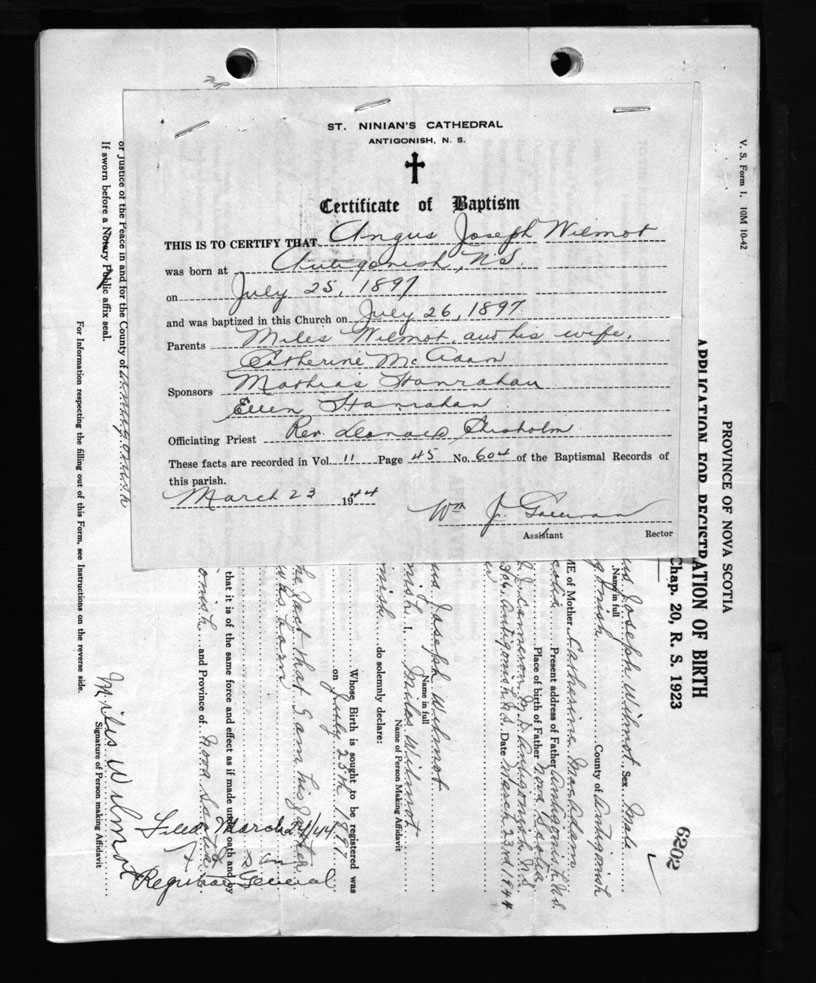 ST. NINIAN'S CATHEDRAL
ANTIGONISH, N. S.
Certificate of Baptism
THIS IS TO CERTIFY THAT Angus Joseph Wilmot
was born at Antigonish, N.S.
on July 25, 1897
and was baptized in this Church on July 26, 1897
Parents Miles Wilmot and his wife,
Catherine McAdam
Sponsors Mathias Hanrahan
Ellen Hanrahan
Officiating Priest Rev. Chisholm
These facts are recorded in Vol. 11 Page 45 No. 604 of the Baptismal Records of
this parish.
March 23 1944
Wm J.
Assistant Rector
V. S. Form 1. 10M 10-42
PROVINCE OF NOVA SCOTIA
APPLICATION FOR REGISTRATION OF BIRTH
Chap. 20, R. S. 1923
6202
us Joseph Wilmot Sex Male
Name in full
gonish County of Antigonish
ME of Mother Catherine MacAdam
Present address of Father Antigonish N.S.
Place of birth of Father Nova Scotia
Cameron M.D. Antigonish N.S.
304, Antigonish N.S. Date March 23rd 1944
us Joseph Wilmot
Name in full
nish I, Miles Wilmot
Name of Person making Affidavit
nish do solemnly declare:
Whose Birth is sought to be registered was
on July 25th 1897
he fact that I am his father
was born
that it is of the same force and effect as if made under oath and by
onish and Province of Nova Scotia
Miles Wilmot
Signature of Person making Affidavit
Filed March 24/44
Registrar General
or Justice of the Peace in and for the County of Antigonish
If sworn before a Notary Public affix seal.
For Information respecting the filling out of this Form, see Instructions on the reverse side.